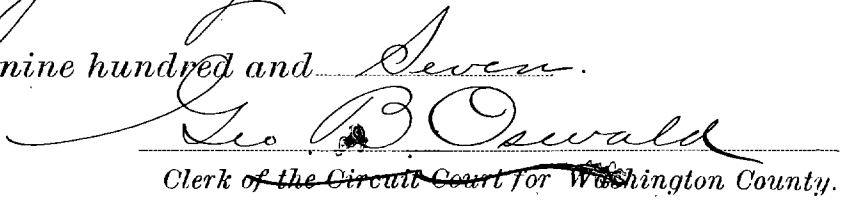 nine hundred and Seven.
Geo. B. Oswald
Clerk of the Circuit Court for Washington County.